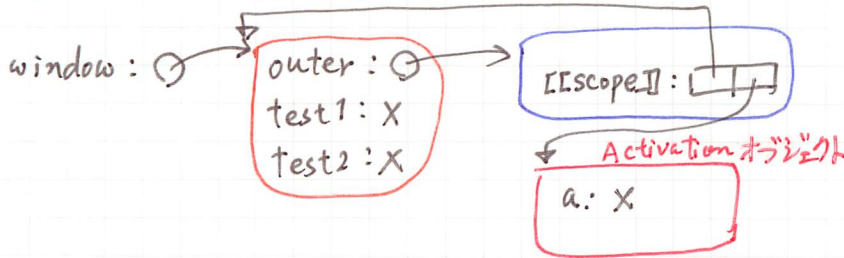 window :
outer :
test1 : X
test2 : X
[[scope]] :
Activation オブジェクト
a : X